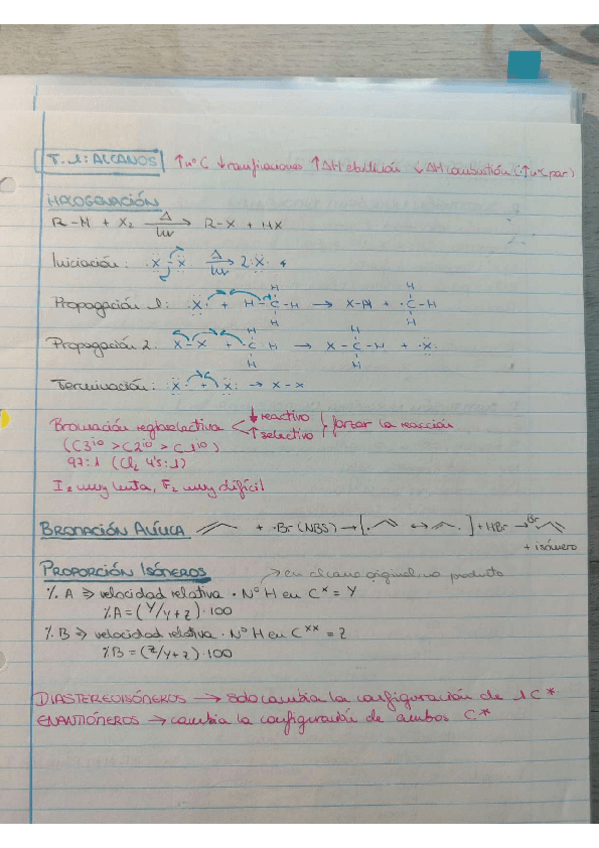 T.1: ALCANOS ↑nº C ↓ramificaciones ↑ΔH ebullición ↓ΔH combustión (∴↑nº par)
HALOGENACIÓN
R-H + X₂ →(Δ / UV) R-X + HX
Iniciación: X-X →(Δ / UV) 2·X·
Propagación 1: X· + H-C-H → X-H + ·C-H
Propagación 2: X-X + ·C H → X-C-H + ·X·
Terminación: X· + X· → X-X
Bromación regioselectiva < ↓reactivo ↑selectivo } forzar la reacción
(C3io > C2io > C1io)
97:1 (Cl₂ 4'5:1)
I₂ muy lenta, F₂ muy difícil
BROMACIÓN ALÍLICA + ·Br (NBS) → [ ↔ ] + HBr → Br
+ isómero
PROPORCIÓN ISÓMEROS → en alcano original no producto
% A ⇒ velocidad relativa · Nº H en C* = Y
%A = (Y/Y+Z)·100
% B ⇒ velocidad relativa · Nº H en C** = Z
%B = (Z/Y+Z)·100
DIASTEREOISÓMEROS → solo cambia la configuración de 1 C*
ENANTIÓMEROS → cambia la configuración de ambos C*